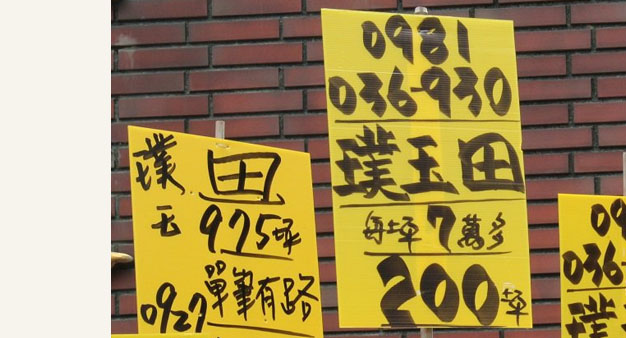 璞玉
田
975坪
單筆有路
0927
0981
036-930
璞玉田
每坪7萬多
200坪
09
036-
璞